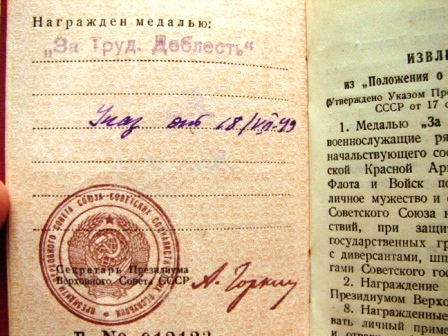 Награжден медалью:
„За Труд. Доблесть“
Указ от
ПРЕЗИДИУМ ВЕРХОВНОГО СОВЕТА СОЮЗА СОВЕТСКИХ
Секретарь Президиума
Верховного Совета СССР
А. Горкин
ИЗВЛЕ
из „Положения о
(Утверждено Указом Пре
СССР от 17 о
1. Медалью „За
военнослужащие ря
начальствующего со
ской Красной Ар
Флота и Войск
личное мужество и о
Советского Союза
ствий, при защит
государственных гр
с диверсантами, шп
гами Советского го
2. Награждение
Президиумом Верхо
8. Награжденны
вать личный приго